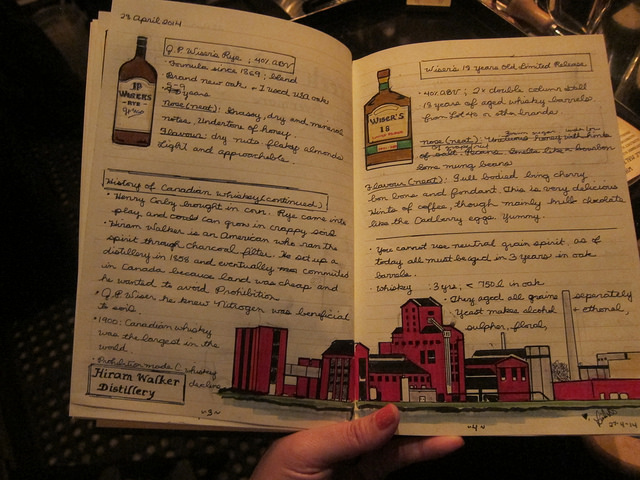 23 April 2014
J.P. Wiser's Rye ; 40% ABV
· Formula since 1869; blend
Brand new oak + 1 used USA oak
5-9 years
Nose (neat): Grassy, dry and mineral
notes. Undertone of honey.
Flavour: dry nuts, flakey almonds
Light and approachable.
JP
WISER'S
RYE
History of Canadian whiskey (continued)
· Henry Corby brought in corn. Rye came into
play, and could can grow in crappy soil
· Hiram Walker is an American who ran the
spirit through charcoal filter. He set up a
distillery in 1858 and eventually
in Canada because land was cheap and
he wanted to avoid Prohibition
· J.P. Wiser he knew Nitrogen was beneficial
to soil
· 1900: Canadian whisky
was the largest in the
world.
· Prohibition made C whiskey
decline
Hiram Walker
Distillery
~3~
Wiser's 18 years Old Limited Release
· 40% ABV ; 2x double column still
18 years of aged whiskey barrels
from Lot 40 or other brands.
Nose (neat): Unctuous honey with hints
of salt. Smells like a bourbon
Some mung beans
WISER'S
18
Flavour (neat): Full bodied bing cherry
bon bons and fondant. This is very delicious
Hints of coffee, though mainly milk chocolate
like the Cadberry eggs. Yummy.
· You cannot use neutral grain spirit, as of
today all must be aged in 3 years in oak
barrels.
· Whiskey : 3 yrs, < 750 L in oak
· They aged all grains separately
· Yeast makes alcohol + ethanol,
sulpher, floral,
~4~
27-4-14